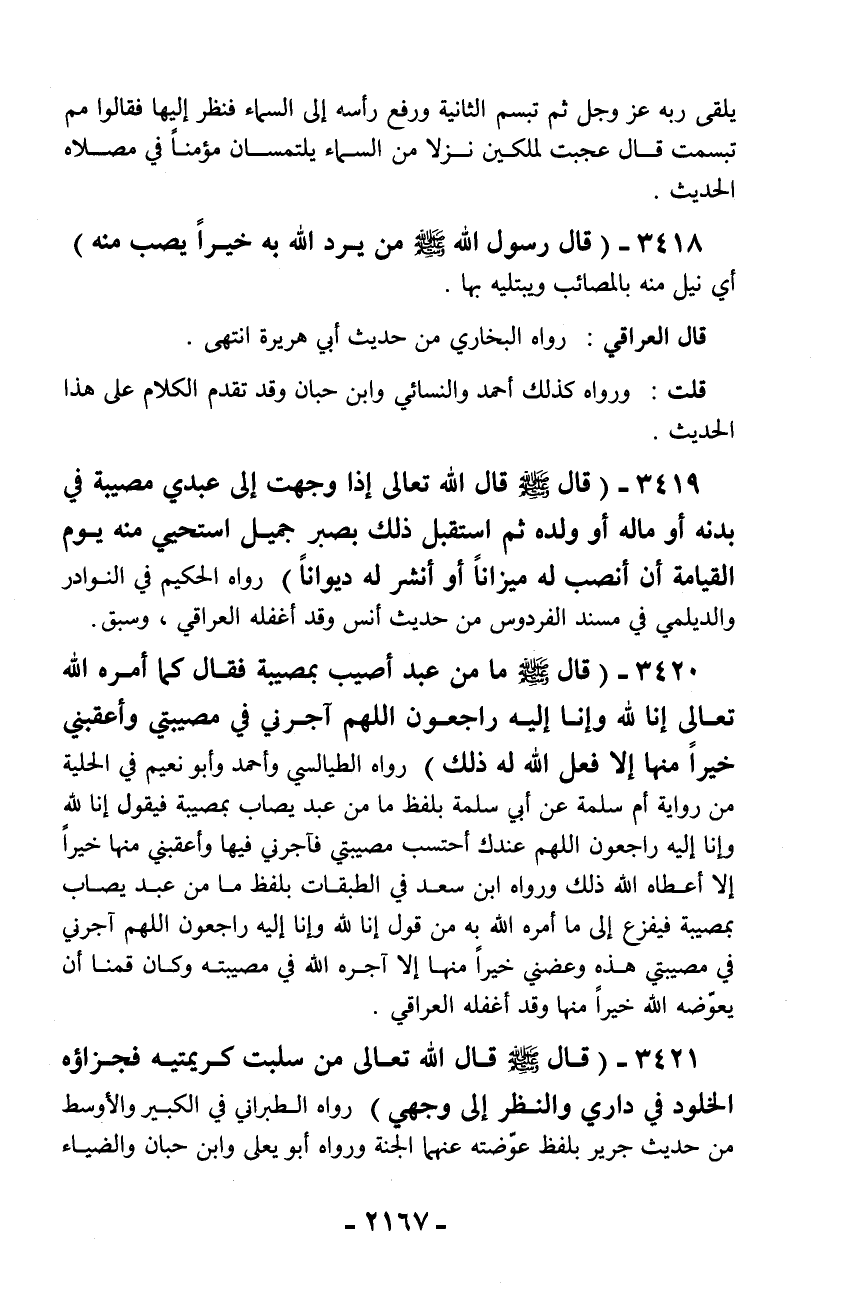 يلقى ربه عز وجل ثم تبسم الثانية ورفع رأسه إلى السماء فنظر إليها فقالوا مم
تبسمت قال عجبت لملكين نزلا من السماء يلتمسان مؤمناً في مصلاه
الحديث .
٣٤١٨ ـ ( قال رسول الله ﷺ من يرد الله به خيراً يصب منه )
أي نيل منه بالمصائب ويبتليه بها .
قال العراقي : رواه البخاري من حديث أبي هريرة انتهى .
قلت : ورواه كذلك أحمد والنسائي وابن حبان وقد تقدم الكلام على هذا
الحديث .
٣٤١٩ ـ ( قال ﷺ قال الله تعالى إذا وجهت إلى عبدي مصيبة في
بدنه أو ماله أو ولده ثم استقبل ذلك بصبر جميل استحيي منه يوم
القيامة أن أنصب له ميزاناً أو أنشر له ديواناً ) رواه الحكيم في النوادر
والديلمي في مسند الفردوس من حديث أنس وقد أغفله العراقي ، وسبق.
٣٤٢٠ ـ ( قال ﷺ ما من عبد أصيب بمصيبة فقال كما أمره الله
تعالى إنا لله وإنا إليه راجعون اللهم آجرني في مصيبتي وأعقبني
خيراً منها إلا فعل الله له ذلك ) رواه الطيالسي وأحمد وأبو نعيم في الحلية
من رواية أم سلمة عن أبي سلمة بلفظ ما من عبد يصاب بمصيبة فيقول إنا لله
وإنا إليه راجعون اللهم عندك أحتسب مصيبتي فآجرني فيها وأعقبني منها خيراً
إلا أعطاه الله ذلك ورواه ابن سعد في الطبقات بلفظ ما من عبد يصاب
بمصيبة فيفزع إلى ما أمره الله به من قول إنا لله وإنا إليه راجعون اللهم آجرني
في مصيبتي هذه وعضني خيراً منها إلا آجره الله في مصيبته وكان قمنا أن
يعوّضه الله خيراً منها وقد أغفله العراقي .
٣٤٢١ ـ ( قال ﷺ قال الله تعالى من سلبت كريمتيه فجزاؤه
الخلود في داري والنظر إلى وجهي ) رواه الطبراني في الكبير والأوسط
من حديث جرير بلفظ عوّضته عنهما الجنة ورواه أبو يعلى وابن حبان والضياء
ـ ٢١٦٧ ـ